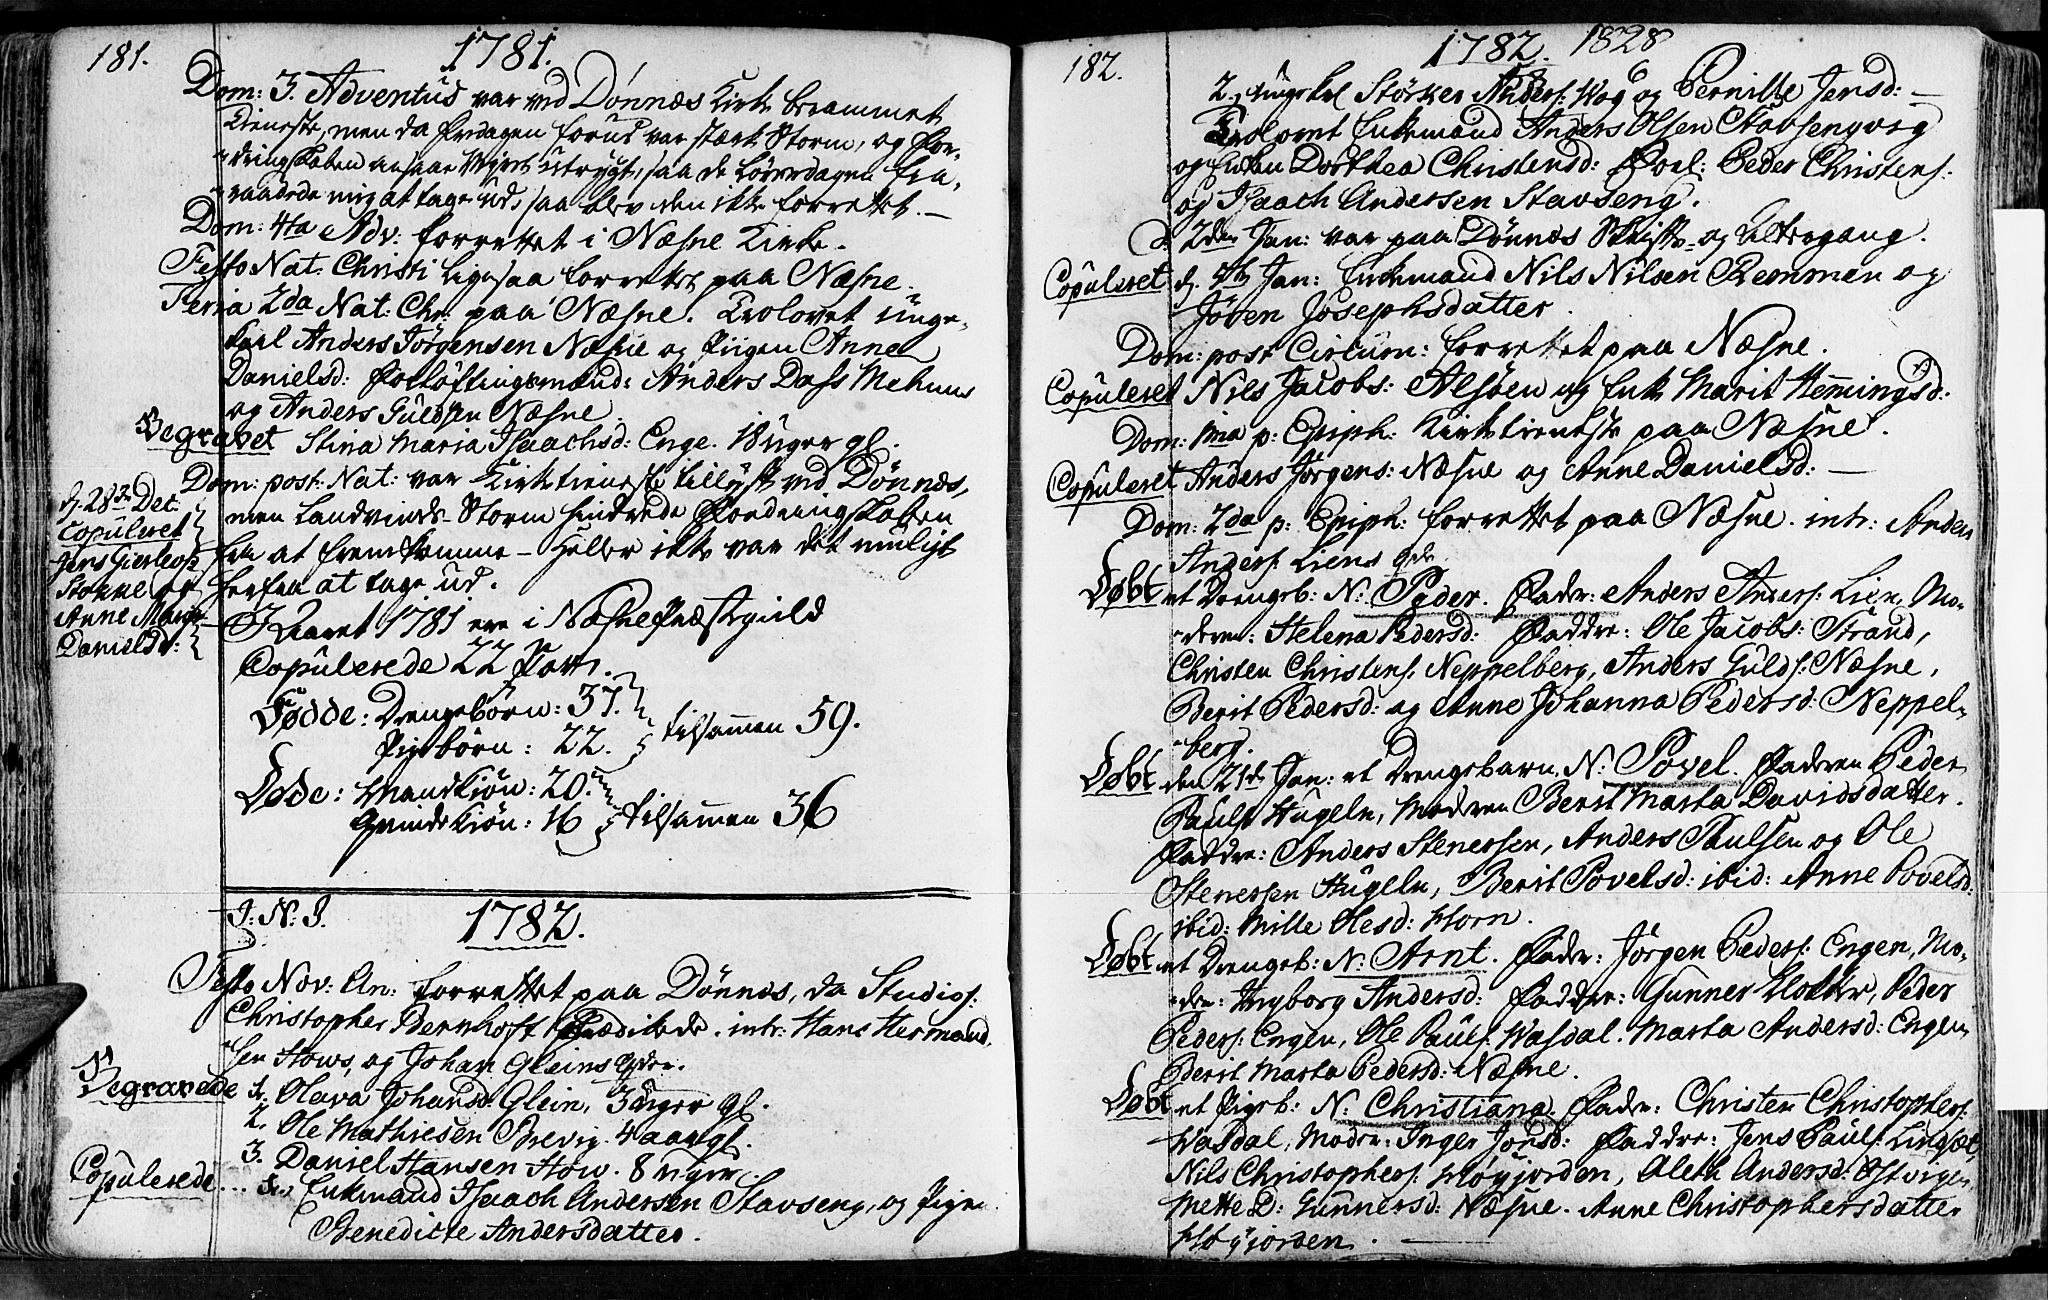 181.
1781.
Dom: 3. Adventus var ved Dönnæs Kirke berammet
tieneste, men da fredagen forud var stærk Storm, og For-
-dringskaben ansaae Vejret utrygt, saa de Löverdagen fra-
-raadede mig at tage ud, saa blev den ikke forrettet. -
Dom: 4ta Adv: forrettet i Næsne Kirke.
Festo Nat: Christi ligesaa forrettet paa Næsne.
Feria 2da Nat: Chr: paa Næsne. Trolovet unge-
karl Anders Jörgensen Næsne og Pigen Anne
Danielsd: Forlöftingsmænd: Anders Dass
og Anders Guldsen Næsne.
Begravet Stina Maria Isaachsd: Enge. 18 uger gl.
Dom: post: Nat: var Kirketieneste tillyst ved Dönnæs,
men Landvinds-Storm hindrede Fordringskaben
fra at fremkomme - Heller ikke var det muligt
herfra at tage ud.
d. 28de Dec:
Copuleret
Jens
Stokke og
Anne Marie
Danielsdr:
I Aaret 1781 ere i Næsne Præstegield
Copulerede 22 Par.
Födde: Drengebörn: 37.
Pigebörn: 22. tilsammen 59.
Döde: Mandkiön: 20.
Qvindekiön: 16 tilsammen 36
J. N. J. 1782.
Festo Nov: An: forrettet paa Dönnæs, da Studios:
Christopher Bernhoft Prædikede. intr: Hans Hermand-
-sen Stows, og Johan Gleins Qder.
Begravede 1. Olava Johansd: Glein, 3 uger gl.
2. Ole Mathiesen Brevig. 4 aar gl.
3. Daniel Hansen Stow. 8 uger
Copulerede 1. Enkemand Isaach Andersen Stavseng, og Pigen
Benedicte Andersdatter.
182.
1782. 1828
2. ungekarl Störker Anders: Wog og Pernille Jensd: -
Trolovet Enkemand Anders Olsen Stavsengvig
og Enken Dorthea Christensd: Forl: Peder Christens:
og Isaach Andersen Stavseng.
d. 2den Jan: var paa Dönnæs Skrifte- og Altergang.
Copuleret d. 4de Jan: Enkemand Nils Nilsen Remmen og
Jöven Josephsdatter.
Dom: post Circum: forrettet paa Næsne.
Copuleret Nils Jacobs: Alsöen og Enke Marit Hemmingsd:
Dom: 1ma p: Epiph: Kirketieneste paa Næsne.
Copuleret Anders Jörgens: Næsne og Anne Danielsd: -
Dom: 2da p: Epiph: forrettet paa Næsne. intr: Anders
Anders: Liens Qde
Döbt et Drengeb: N: Peder. Fadr: Anders Anders: Lien, Mo-
-deren: Helena Pedersd: Faddre: Ole Jacobs: Strand,
Christen Christens: Neppelberg, Anders Gulds: Næsne,
Berit Pedersd: og Anne Johanna Pedersd: Neppel-
-berg.
Döbt den 21de Jan: et Drengebarn, N: Povel. Faderen Peder
Pauls: Hugeln, Moderen Berit Marta Davidsdatter.
Faddre: Anders Stenersen, Anders Paulsen og Ole
Stenersen Hugeln, Berit Povelsd: ibid: Anne Povelsd:
ibid: Mille Olesd: Horn.
Döbt et Drengeb: N: Arnt. Fadr: Jörgen Peders: Engen, Mo-
-der: Ingborg Andersd: Faddre: Gunner Peder
Peders: Engen, Ole Pauls: Wasdal. Marta Andersd: Engen
Berit Marta Pedersd: Næsne.
Döbt et Pigeb: N: Christiana. Fadr: Christen Christophers:
Wasdal, Moder: Inger Jonsd: Faddre: Jens Pauls:
Nils Christophers: Höyjorden, Aleth Andersd:
Mette D: Gunnersd: Næsne. Anne Christophersdatter
Höyjorden.